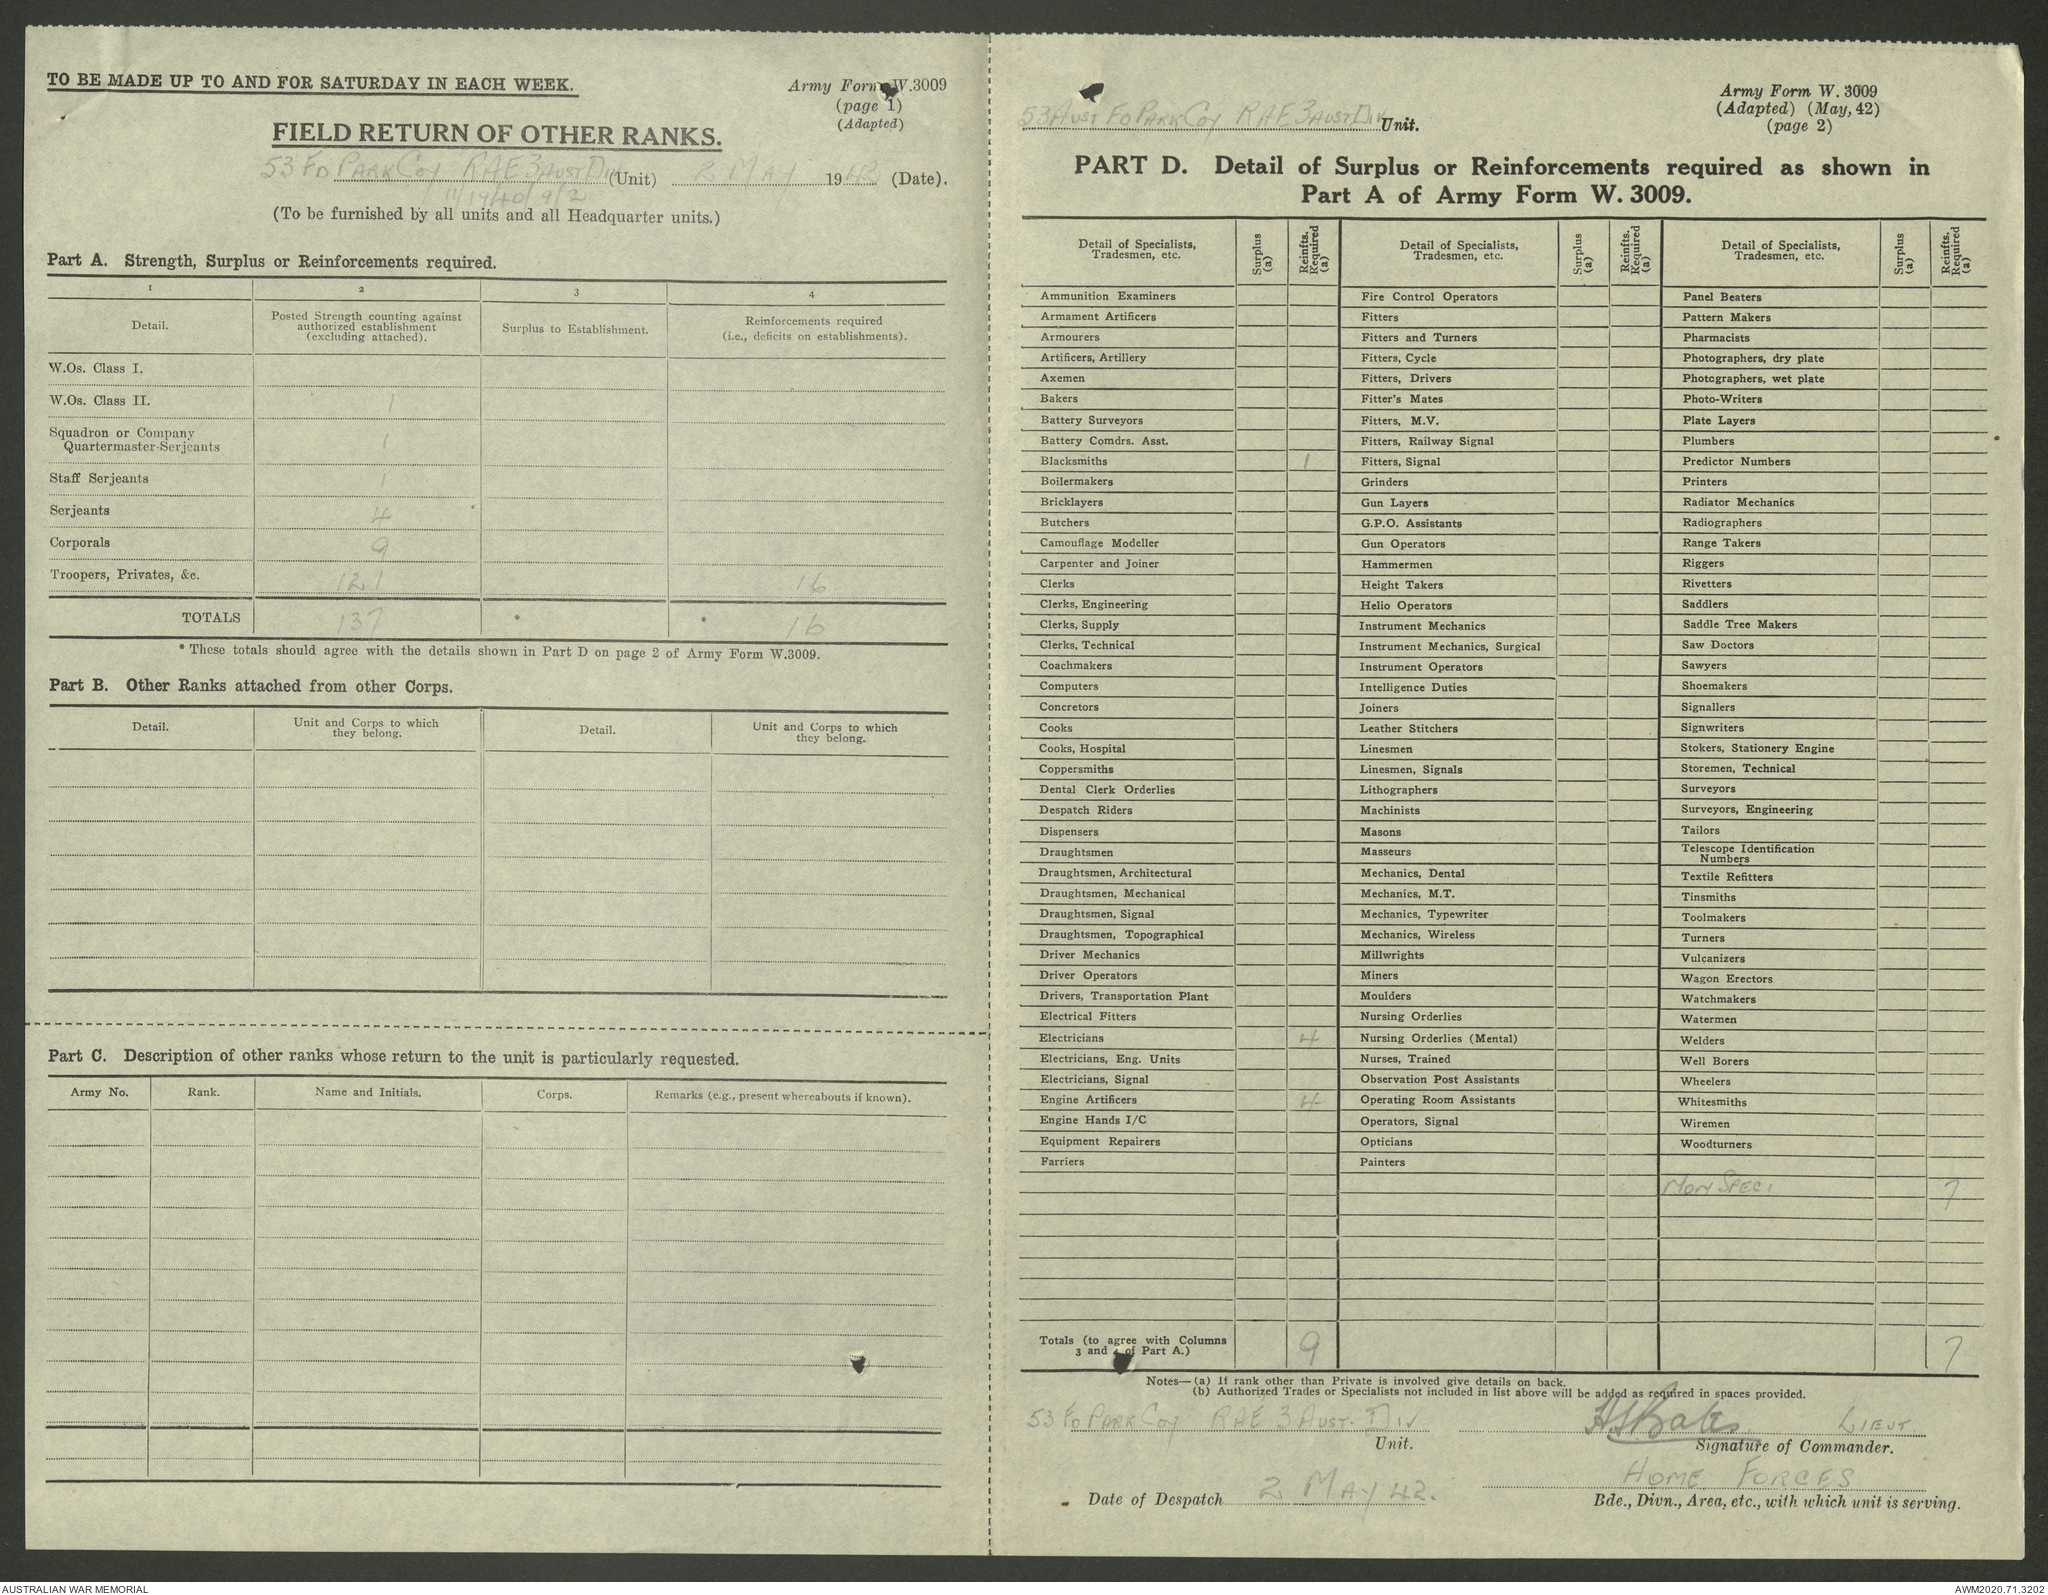 TO BE MADE UP TO AND FOR SATURDAY IN EACH WEEK.
Army Form W.3009
(page 1)
(Adapted)
FIELD RETURN OF OTHER RANKS.
53 FD PARK COY RAE 3 AUST DIV (Unit) 2 MAY 1942 (Date).
11/1940/9/2
(To be furnished by all units and all Headquarter units.)
Part A. Strength, Surplus or Reinforcements required.
1 2 3 4
Detail. Posted Strength counting against authorized establishment (excluding attached). Surplus to Establishment. Reinforcements required (i.e., deficits on establishments).
W.Os. Class I.
W.Os. Class II. 1
Squadron or Company
Quartermaster-Serjeants 1
Staff Serjeants 1
Serjeants 4
Corporals 9
Troopers, Privates, &c. 121 16
TOTALS 137 * * 16
* These totals should agree with the details shown in Part D on page 2 of Army Form W.3009.
Part B. Other Ranks attached from other Corps.
Detail. Unit and Corps to which they belong. Detail. Unit and Corps to which they belong.
Part C. Description of other ranks whose return to the unit is particularly requested.
Army No. Rank. Name and Initials. Corps. Remarks (e.g., present whereabouts if known).
53 AUST FD PARK COY RAE 3 AUST DIV Unit.
Army Form W. 3009
(Adapted) (May, 42)
(page 2)
PART D. Detail of Surplus or Reinforcements required as shown in
Part A of Army Form W. 3009.
Detail of Specialists, Tradesmen, etc. Surplus (a) Reinfts. Required (a) Detail of Specialists, Tradesmen, etc. Surplus (a) Reinfts. Required (a) Detail of Specialists, Tradesmen, etc. Surplus (a) Reinfts. Required (a)
Ammunition Examiners Fire Control Operators Panel Beaters
Armament Artificers Fitters Pattern Makers
Armourers Fitters and Turners Pharmacists
Artificers, Artillery Fitters, Cycle Photographers, dry plate
Axemen Fitters, Drivers Photographers, wet plate
Bakers Fitter's Mates Photo-Writers
Battery Surveyors Fitters, M.V. Plate Layers
Battery Comdrs. Asst. Fitters, Railway Signal Plumbers
Blacksmiths 1 Fitters, Signal Predictor Numbers
Boilermakers Grinders Printers
Bricklayers Gun Layers Radiator Mechanics
Butchers G.P.O. Assistants Radiographers
Camouflage Modeller Gun Operators Range Takers
Carpenter and Joiner Hammermen Riggers
Clerks Height Takers Rivetters
Clerks, Engineering Helio Operators Saddlers
Clerks, Supply Instrument Mechanics Saddle Tree Makers
Clerks, Technical Instrument Mechanics, Surgical Saw Doctors
Coachmakers Instrument Operators Sawyers
Computers Intelligence Duties Shoemakers
Concretors Joiners Signallers
Cooks Leather Stitchers Signwriters
Cooks, Hospital Linesmen Stokers, Stationery Engine
Coppersmiths Linesmen, Signals Storemen, Technical
Dental Clerk Orderlies Lithographers Surveyors
Despatch Riders Machinists Surveyors, Engineering
Dispensers Masons Tailors
Draughtsmen Masseurs Telescope Identification Numbers
Draughtsmen, Architectural Mechanics, Dental Textile Refitters
Draughtsmen, Mechanical Mechanics, M.T. Tinsmiths
Draughtsmen, Signal Mechanics, Typewriter Toolmakers
Draughtsmen, Topographical Mechanics, Wireless Turners
Driver Mechanics Millwrights Vulcanizers
Driver Operators Miners Wagon Erectors
Drivers, Transportation Plant Moulders Watchmakers
Electrical Fitters Nursing Orderlies Watermen
Electricians 4 Nursing Orderlies (Mental) Welders
Electricians, Eng. Units Nurses, Trained Well Borers
Electricians, Signal Observation Post Assistants Wheelers
Engine Artificers 4 Operating Room Assistants Whitesmiths
Engine Hands I/C Operators, Signal Wiremen
Equipment Repairers Opticians Woodturners
Farriers Painters
NON SPECI 7
Totals (to agree with Columns
3 and 4 of Part A.) 9 7
Notes—(a) If rank other than Private is involved give details on back.
(b) Authorized Trades or Specialists not included in list above will be added as required in spaces provided.
53 FD PARK COY RAE 3 AUST. DIV HSBates LIEUT
Unit. Signature of Commander.
HOME FORCES
Date of Despatch 2 MAY 42. Bde., Divn., Area, etc., with which unit is serving.
AUSTRALIAN WAR MEMORIAL AWM2020.71.3202